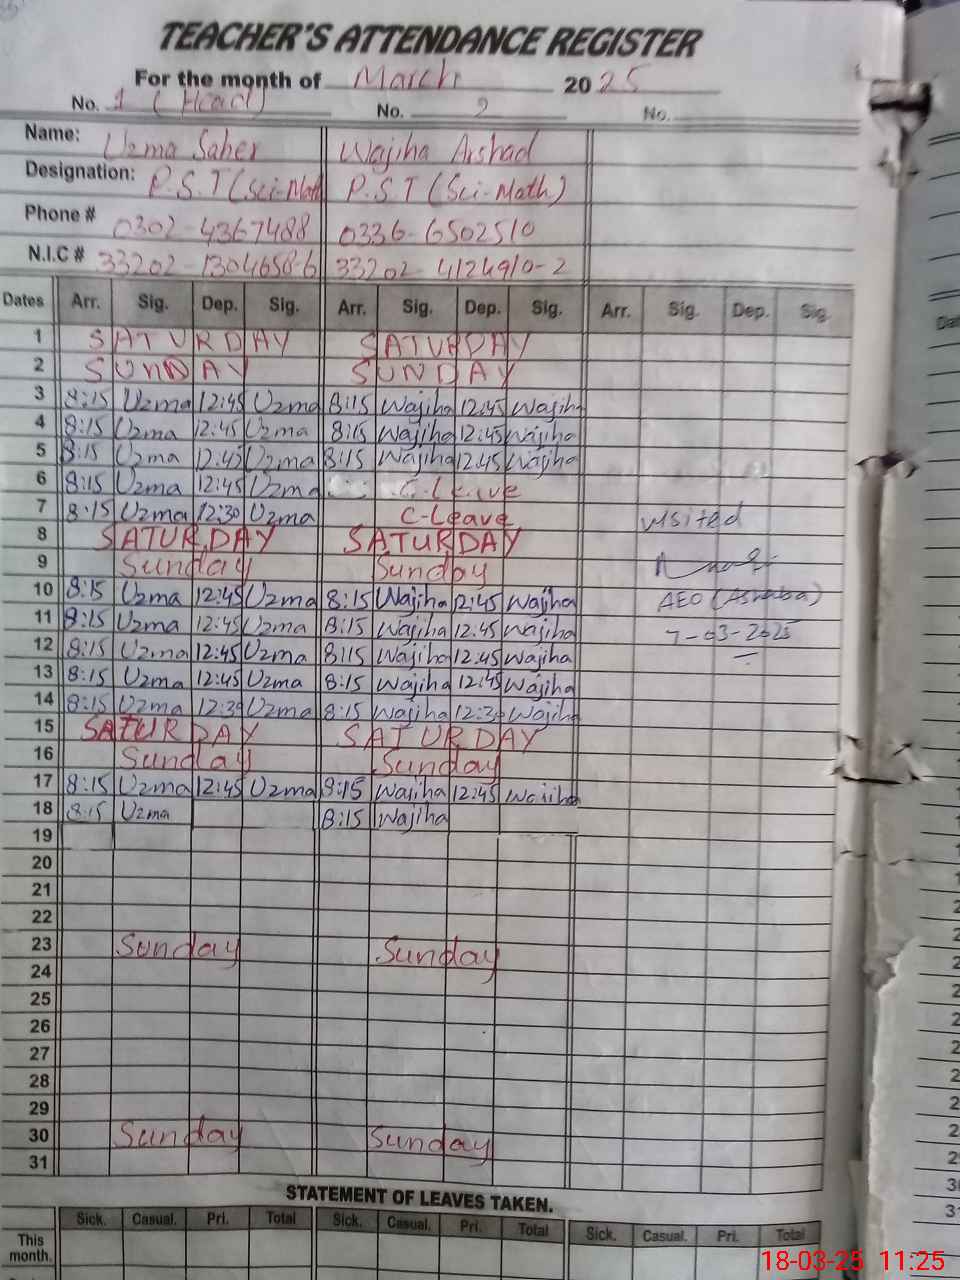 TEACHER'S ATTENDANCE REGISTER
For the month of March 2025
No. 1 (Head) No. 2 No.
Name: Uzma Saher Wajiha Arshad
Designation: P.S.T (Sci-Math P.S.T (Sci-Math)
Phone # 0302-4367488 0336-6502510
N.I.C # 33202-1304658-6 33202-4124910-2
Dates Arr. Sig. Dep. Sig. Arr. Sig. Dep. Sig. Arr. Sig. Dep. Sig.
1 SATURDAY SATURDAY
2 SUNDAY SUNDAY
3 8:15 Uzma 12:45 Uzma 8:15 Wajiha 12:45 Wajiha
4 8:15 Uzma 12:45 Uzma 8:15 Wajiha 12:45 Wajiha
5 8:15 Uzma 12:45 Uzma 8:15 Wajiha 12:45 Wajiha
6 8:15 Uzma 12:45 Uzma C-Leave
7 8:15 Uzma 12:30 Uzma C-Leave visited
8 SATURDAY SATURDAY
9 Sunday Sunday
10 8:15 Uzma 12:45 Uzma 8:15 Wajiha 12:45 Wajiha AEO
11 8:15 Uzma 12:45 Uzma 8:15 Wajiha 12:45 Wajiha 7-03-2025
12 8:15 Uzma 12:45 Uzma 8:15 Wajiha 12:45 Wajiha
13 8:15 Uzma 12:45 Uzma 8:15 Wajiha 12:45 Wajiha
14 8:15 Uzma 12:30 Uzma 8:15 Wajiha 12:30 Wajiha
15 SATURDAY SATURDAY
16 Sunday Sunday
17 8:15 Uzma 12:45 Uzma 8:15 Wajiha 12:45 Wajiha
18 8:15 Uzma 8:15 Wajiha
19
20
21
22
23 Sunday Sunday
24
25
26
27
28
29
30 Sunday Sunday
31
STATEMENT OF LEAVES TAKEN.
Sick. Casual. Pri. Total Sick. Casual. Pri. Total Sick. Casual. Pri. Total
This
month.
18-03-25 11:25